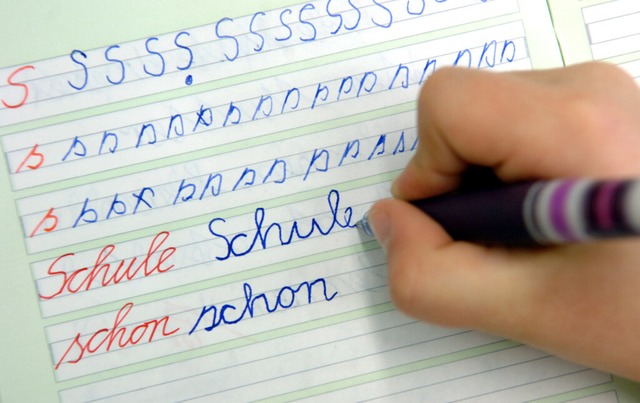 S S S S S S S S S S S S S S
s s s s s s s s s s s s s s s s s
s s s s s s s s s s s s s
Schule Schule
schon schon